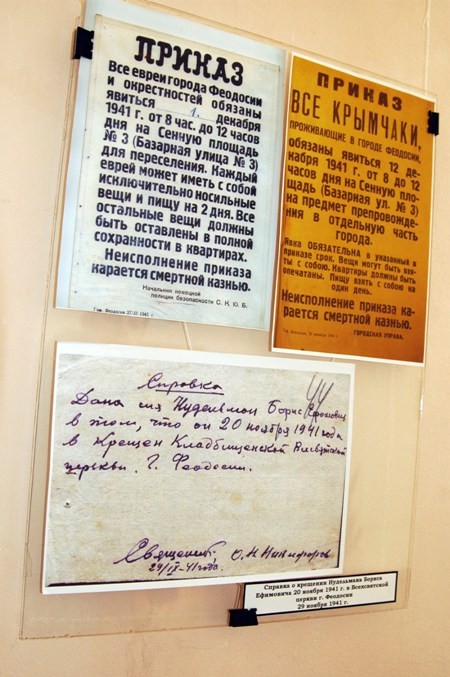 ПРИКАЗ
Все евреи города Феодосии
и окрестностей обязаны
явиться 1. декабря
1941 г. от 8 час. до 12 часов
дня на Сенную площадь
№ 3 (Базарная улица № 3)
для переселения. Каждый
еврей может иметь с собой
исключительно носильные
вещи и пищу на 2 дня. Все
остальные вещи должны
быть оставлены в полной
сохранности в квартирах.
Неисполнение приказа
карается смертной казнью.
Начальник немецкой
полиции безопасности С. К. Ю. Б.
Гор. Феодосия 27/XI 1941 г.
ПРИКАЗ
ВСЕ КРЫМЧАКИ,
ПРОЖИВАЮЩИЕ В ГОРОДЕ ФЕОДОСИИ,
обязаны явиться 12 де-
кабря 1941 г. от 8 до 12
часов дня на Сенную пло-
щадь (Базарная ул. № 3)
на предмет препровожде-
ния в отдельную часть
города.
Явка ОБЯЗАТЕЛЬНА в указанный в
приказе срок. Вещи могут быть взя-
ты с собою. Квартиры должны быть
опечатаны. Пищу взять с собою на
один день.
Неисполнение приказа ка-
рается смертной казнью.
ГОРОДСКАЯ УПРАВА.
Гор. Феодосия, декабря 1941 г.
Справка
Дана сия Нудельман Борис
в том, что он 20 ноября 1941 года
в Крещен Кладбищенской Всесвятской
церкви, г. Феодосии.
Священник О. Н Никифоров
29/ -41 года.
Справка о крещении Нудельмана Бориса
Ефимовича 20 ноября 1941 г. в Всехсвятской
церкви г. Феодосии
29 ноября 1941 г.